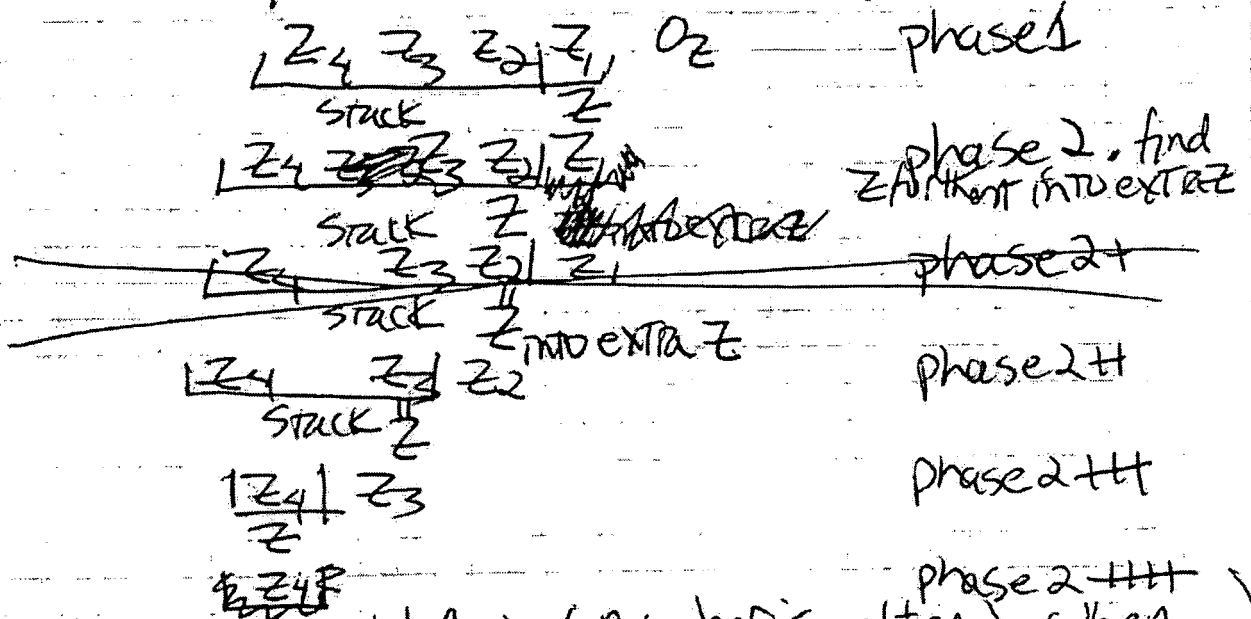 Z4 Z3 Z2 Z1 Oz phase 1
stack Z
Z4 Z3 Z2 Z1 phase 2. find
stack Z Z into extra Z
Z4 Z3 Z2 Z1 phase 2+
stack Z into extra Z
Z4 Z3 Z2 phase 2++
stack Z
Z4 Z3 phase 2+++
Z
Z4 phase 2++++